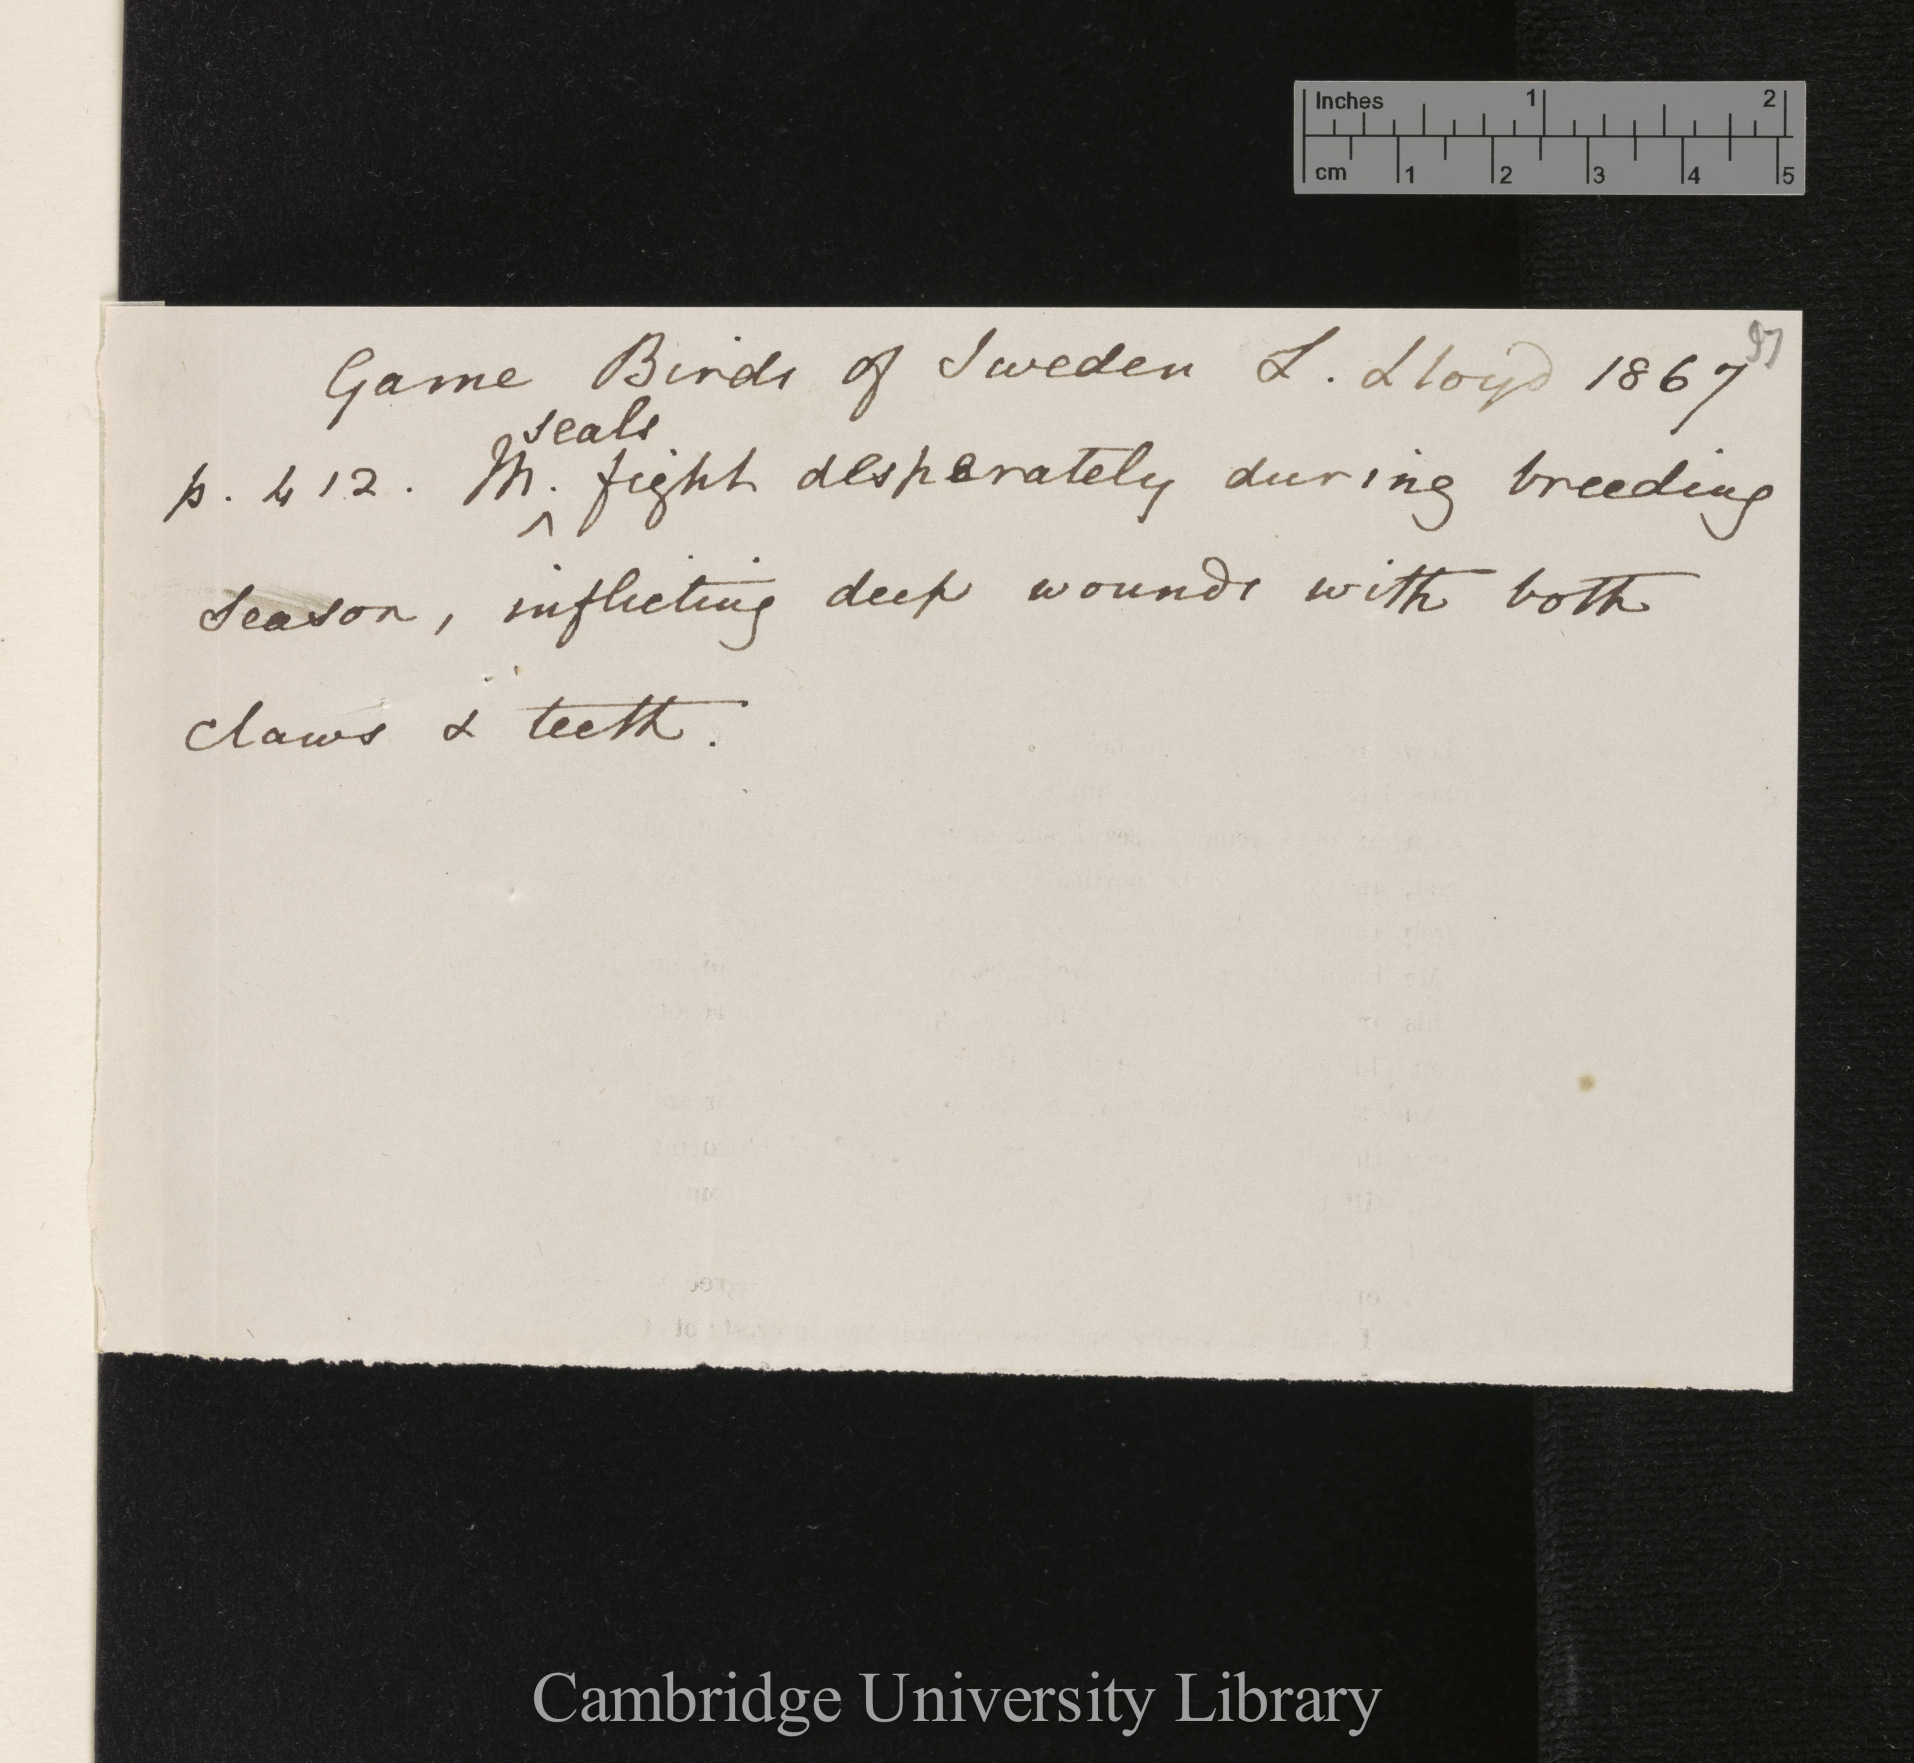 Inches 1 2
cm 1 2 3 4 5
97
Game Birds of Sweden L. Lloyd 1867
seals
p. 412. M. ^ fight desperately during breeding
season, inflicting deep wounds with both
claws & teeth.
Cambridge University Library